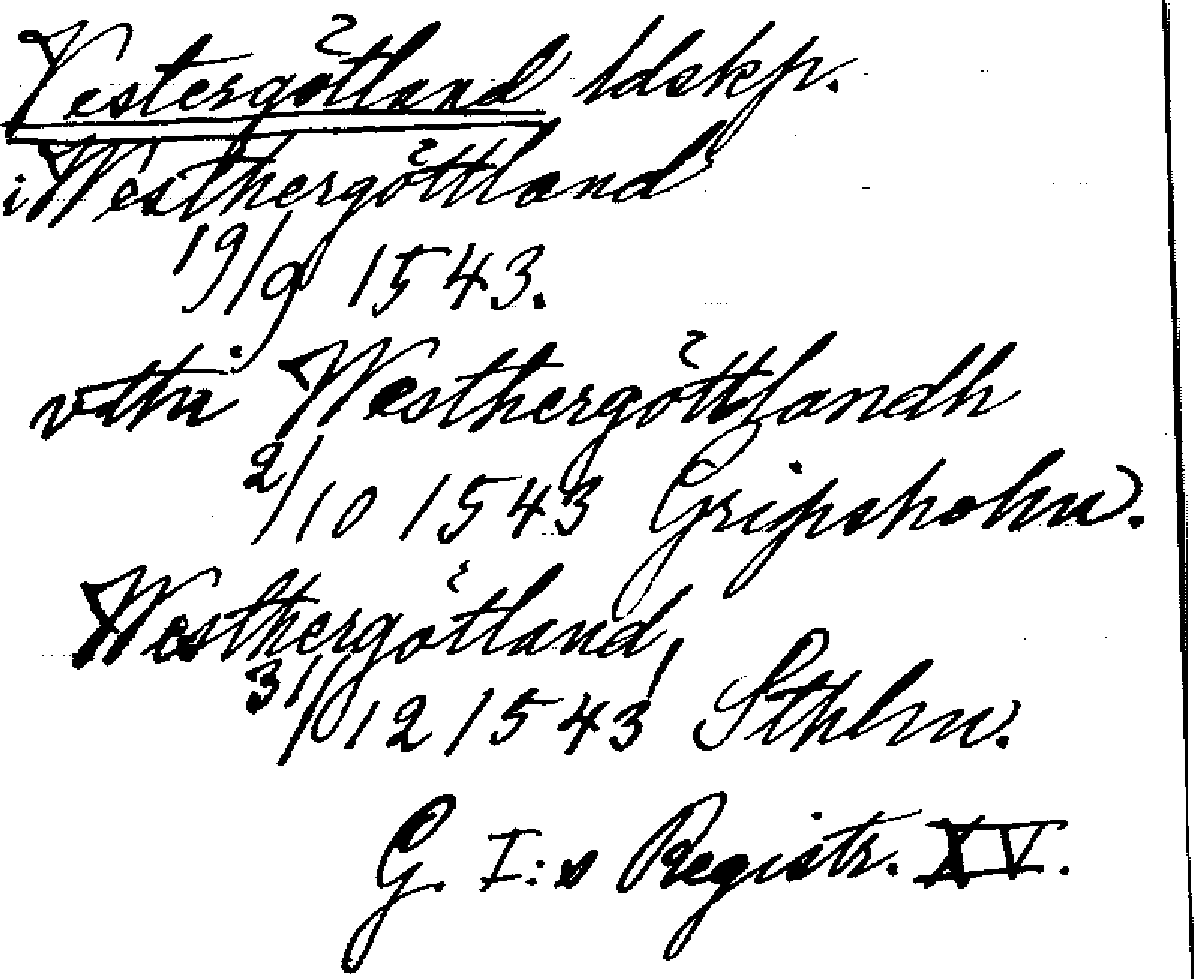 Vestergötland ldskp.
i Westhergöttland
19/9 1543.
vthi Westhergöttlandh
2/10 1543 Gripsholm.
Westhergötland,
31/12 1543, Sthlm.
G. I:s Registr. XV.